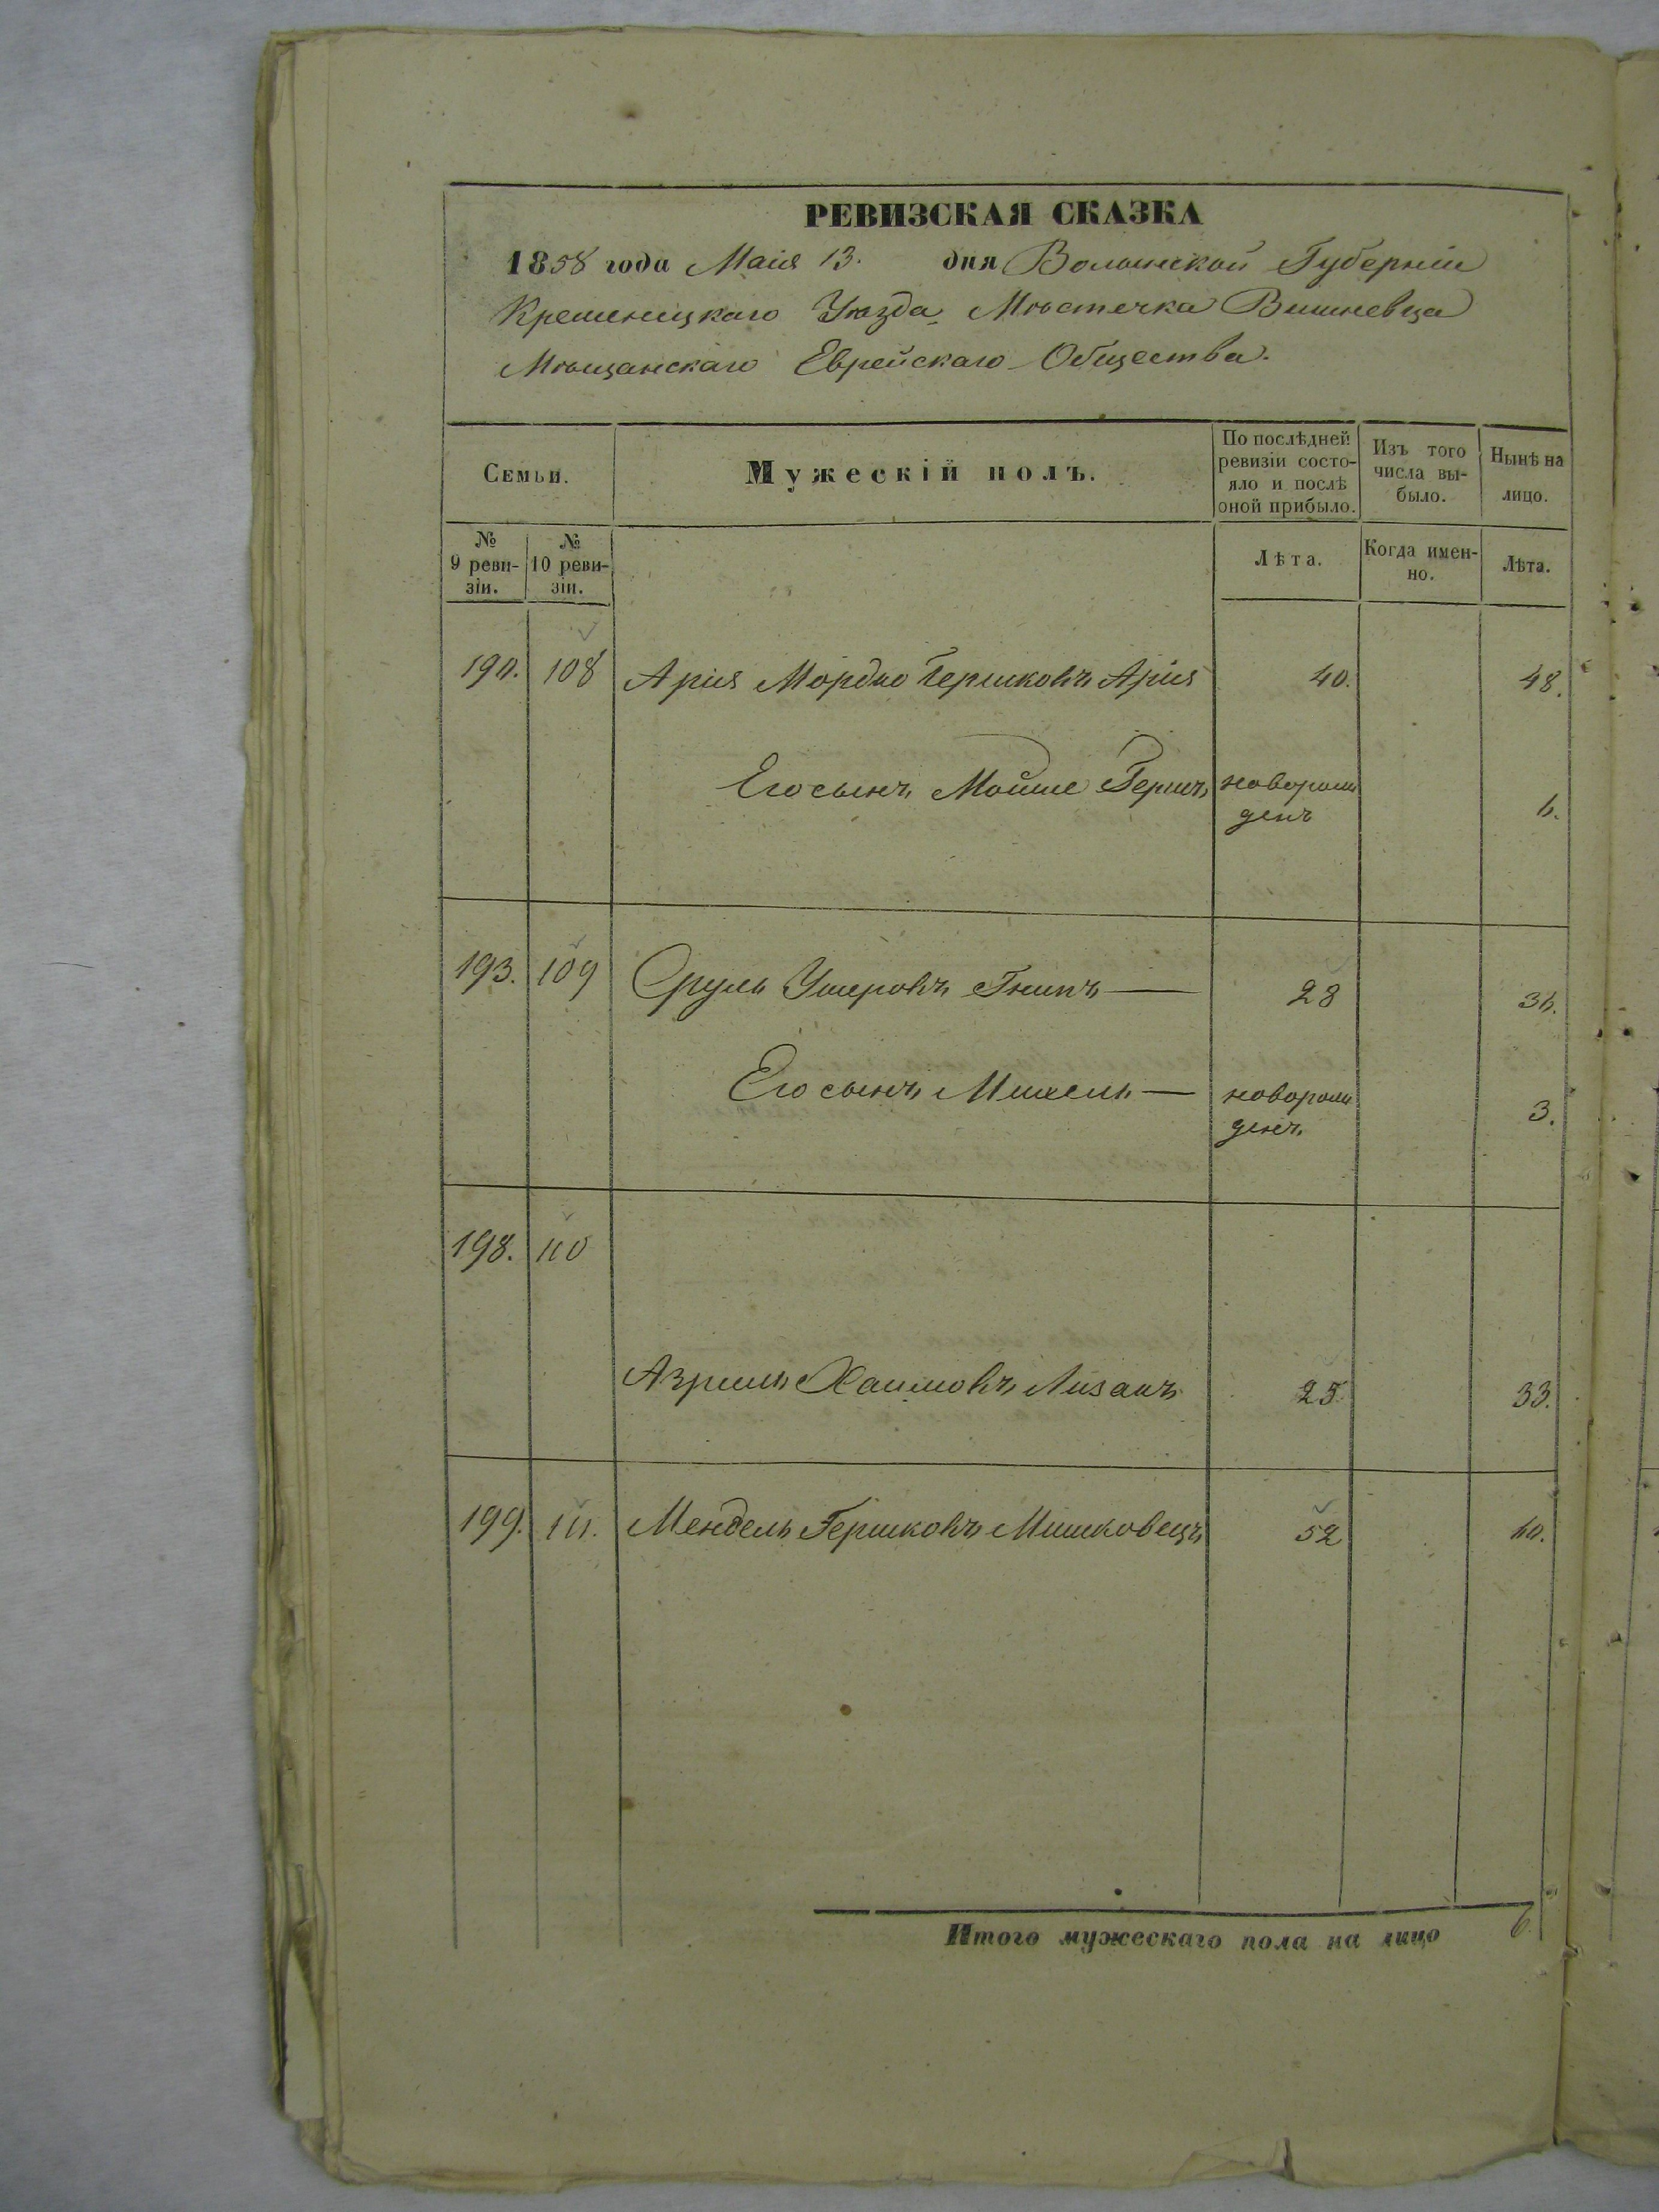 РЕВИЗСКАЯ СКАЗКА
1858 года Маія 13. дня Волынской Губерніи
Кременецкаго Уѣзда Мѣстечка Вишневца
Мѣщанскаго Еврейскаго Общества.
Семьи.
Мужескій полъ.
По послѣдней ревизіи состояло и послѣ оной прибыло.
Изъ того числа выбыло.
Нынѣ на лицо.
№ 9 ревизіи.
№ 10 ревизіи.
Лѣта.
Когда именно.
Лѣта.
190. 108 Арія Мордко Гершковъ Арія 40. 48.
Его сынъ Мойше Гершъ новорожденъ 6.
193. 109 Сруль Ушеровъ Гнипъ 28 36.
Его сынъ Михель новорожденъ 3.
198. 110
Азриль Хаимовъ Лизакъ 25. 33.
199. 111. Мендель Гершковъ Мишковецъ 52 60.
Итого мужескаго пола на лицо 6.